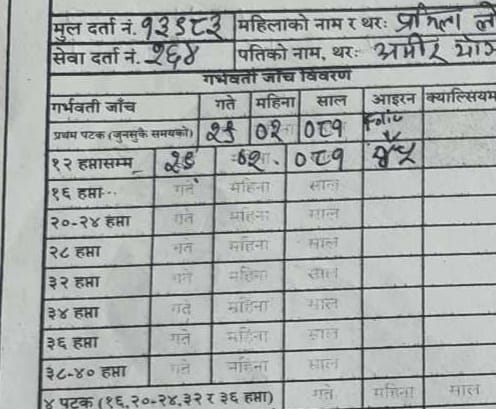 मुल दर्ता नं. १३९८३ महिलाको नाम र थरः प्रमिला
सेवा दर्ता नं. २६४ पतिको नाम, थरः अमीर
गर्भवती जाँच विवरण
गर्भवती जाँच गते महिना साल आइरन क्याल्सियम
प्रथम पटक (जुनसुकै समयको) २९ ०२ ०८१
१२ हप्तासम्म २९ ०२ ०८१
१६ हप्ता गते महिना साल
२०-२४ हप्ता गते महिना साल
२८ हप्ता गते महिना साल
३२ हप्ता गते महिना साल
३४ हप्ता गते महिना साल
३६ हप्ता गते महिना साल
३८-४० हप्ता गते महिना साल
४ पटक (१६,२०-२४,३२ र ३६ हप्ता) गते महिना साल